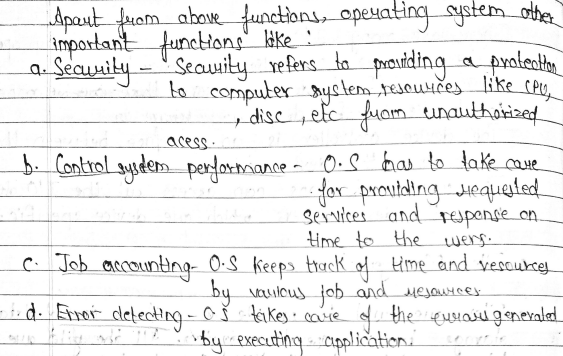 Apart from above functions, operating system other
important functions like :
a. Security - Security refers to providing a protection
to computer system, resources like CPU,
, disc, etc from unauthorized
acess.
b. Control system performance - O.S has to take care
for providing requested
services and response on
time to the users.
c. Job accounting - O.S keeps track of time and resources
by various job and resources
d. Error detecting - O.S takes care of the errors generated
by executing application.